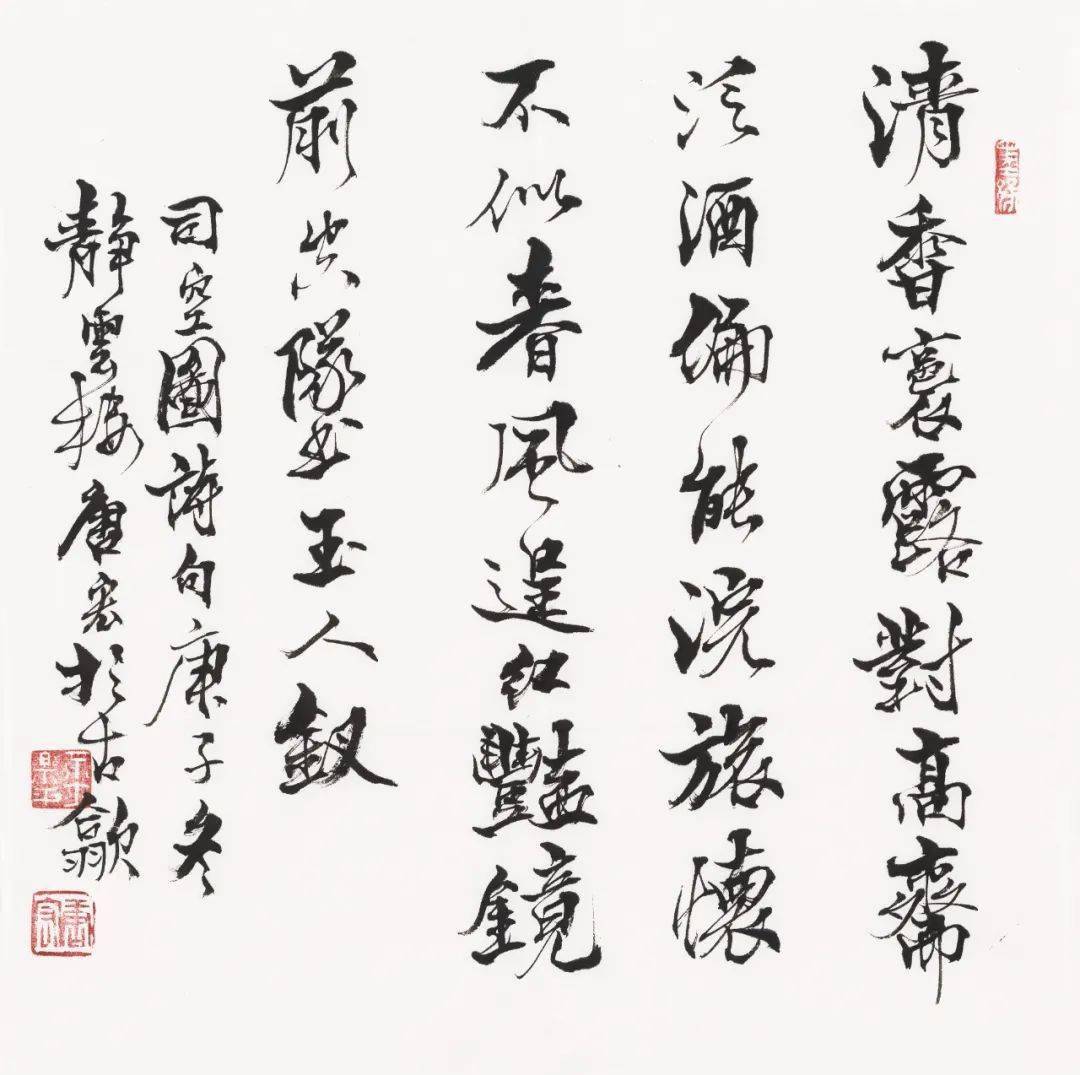 清香裛露對高齋
泛酒偏能浣旅懷
不似春風逞紅豔鏡
前空墜玉人釵
司空圖詩句庚子冬
靜雲樓唐宏於古歙